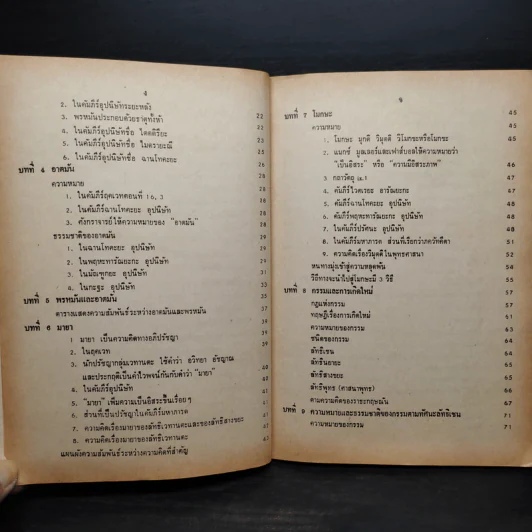 4
2. ในคัมภีร์อุปนิษัทระยะหลัง
3. พรหมันประกอบด้วยธาตุทั้งห้า 22
4. ในคัมภีร์อุปนิษัทชื่อ ไตตติรียะ 22
5. ในคัมภีร์อุปนิษัทชื่อ ไมตรายะณี 24
6. ในคัมภีร์อุปนิษัทชื่อ ฉานโทคยะ 24
บทที่ 4 อาตมัน
ความหมาย
1. ในคัมภีร์ฤคเวทตอนที่ 16, 3
2. ในคัมภีร์ฉานโทคยะ อุปนิษัท
3. ศังกราจารย์ให้ความหมายของ "อาตมัน"
ธรรมชาติของอาตมัน
1. ในฉานโทคยะ อุปนิษัท
2. ในพฤหะทารัณยะกะ อุปนิษัท
3. ในมัณฑูกยะ อุปนิษัท
4. ในกะฐะ อุปนิษัท
บทที่ 5 พรหมันและอาตมัน
ตารางแสดงความสัมพันธ์ระหว่างอาตมันและพรหมัน
บทที่ 6 มายา
1. มายา เป็นความคิดทางอภิปรัชญา
2. ในฤคเวท
3. นักปรัชญากลุ่มเวทานตะ ใช้คำว่า อวิทยา อัชญาณ
และประกฤติเป็นคำไวพจน์กันกับคำว่า "มายา"
4. ในคัมภีร์อุปนิษัท
5. "มายา" เพิ่มความเป็นอิสระขึ้นเรื่อยๆ
6. ส่วนที่เป็นปรัชญาในคัมภีร์มหาภารตะ
7. ความคิดเรื่องมายาของลัทธิเวทานตะและของลัทธิสางขยะ
8. ความคิดเรื่องมายาของลัทธิเวทานตะ
แผนผังความสัมพันธ์ระหว่างความคิดที่สำคัญ 63
บทที่ 7 โมกษะ 45
ความหมาย 45
1. โมกษะ มุกติ วิมุตติ วิโมกษะหรือโมกขะ 45
2. แมกซ์ มูลเลอร์และเฟาส์บอลให้ความหมายว่า
"เป็นอิสระ" หรือ "ความมีอิสระภาพ" 46
3. กลาวัตถุ 46
4. คัมภีร์ไวตเรยะ อารัณยะกะ 47
5. คัมภีร์ฉานโทคยะ อุปนิษัท 47
6. คัมภีร์พฤหะทารัณยะกะ อุปนิษัท 47
7. ในคัมภีร์ปรัศนะ อุปนิษัท 50
8. ในคัมภีร์มหาภารต ส่วนที่เรียกว่าภควัทคีตา 51
9. ความคิดเรื่องวิมุตติในพุทธศาสนา 51
หนทางมุ่งเข้าสู่ความหลุดพ้น 52
วิถีทางจะนำไปสู่โมกษะมี 3 วิธี
บทที่ 8 กรรมและการเกิดใหม่
กฎแห่งกรรม
ทฤษฎีเรื่องการเกิดใหม่
ความหมายของกรรม
ชนิดของกรรม
ลัทธิเชน
ลัทธินยายะ
ลัทธิสางขยะ
ลัทธิพุทธ (ศาสนาพุทธ) 66
ตามความคิดของราธะกฤษณัน 67
บทที่ 9 ความหมายและธรรมชาติของกรรมตามทัศนะลัทธิเชน 71
ความหมายของกรรม 71